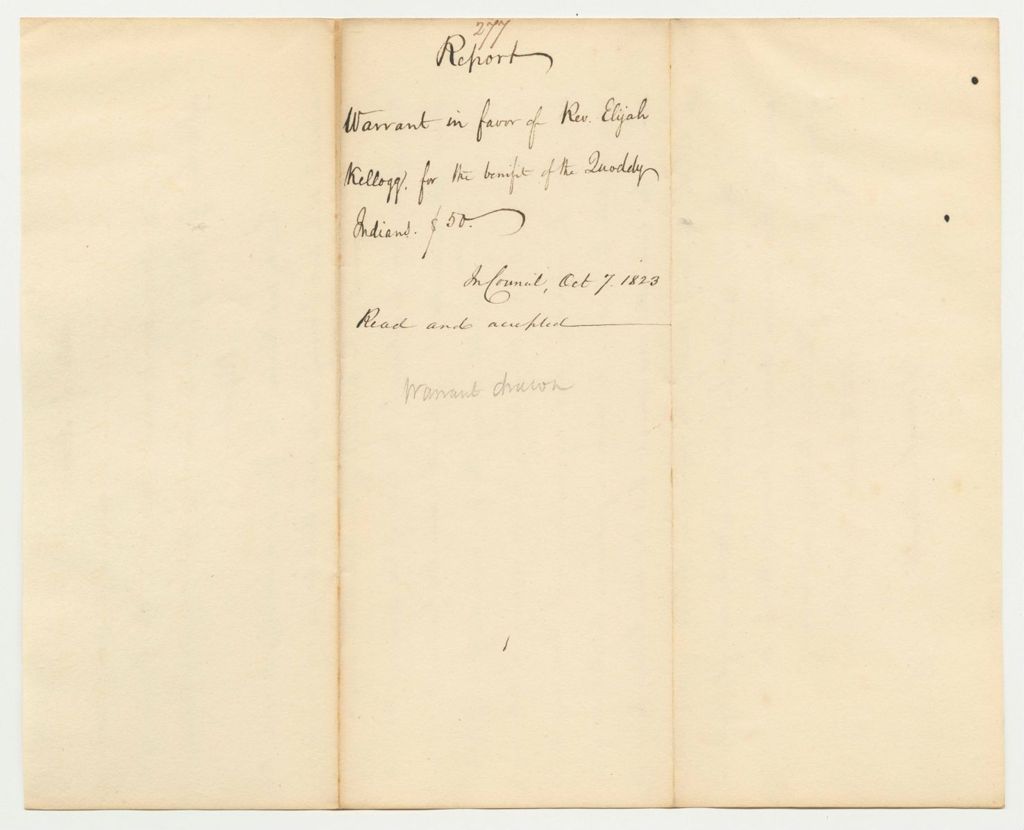 277
Report
Warrant in favor of Rev. Elijah
Kellogg, for the benifit of the Quoddy
Indians. $50.
In Council, Oct 7. 1823
Read and accepted
Warrant drawn